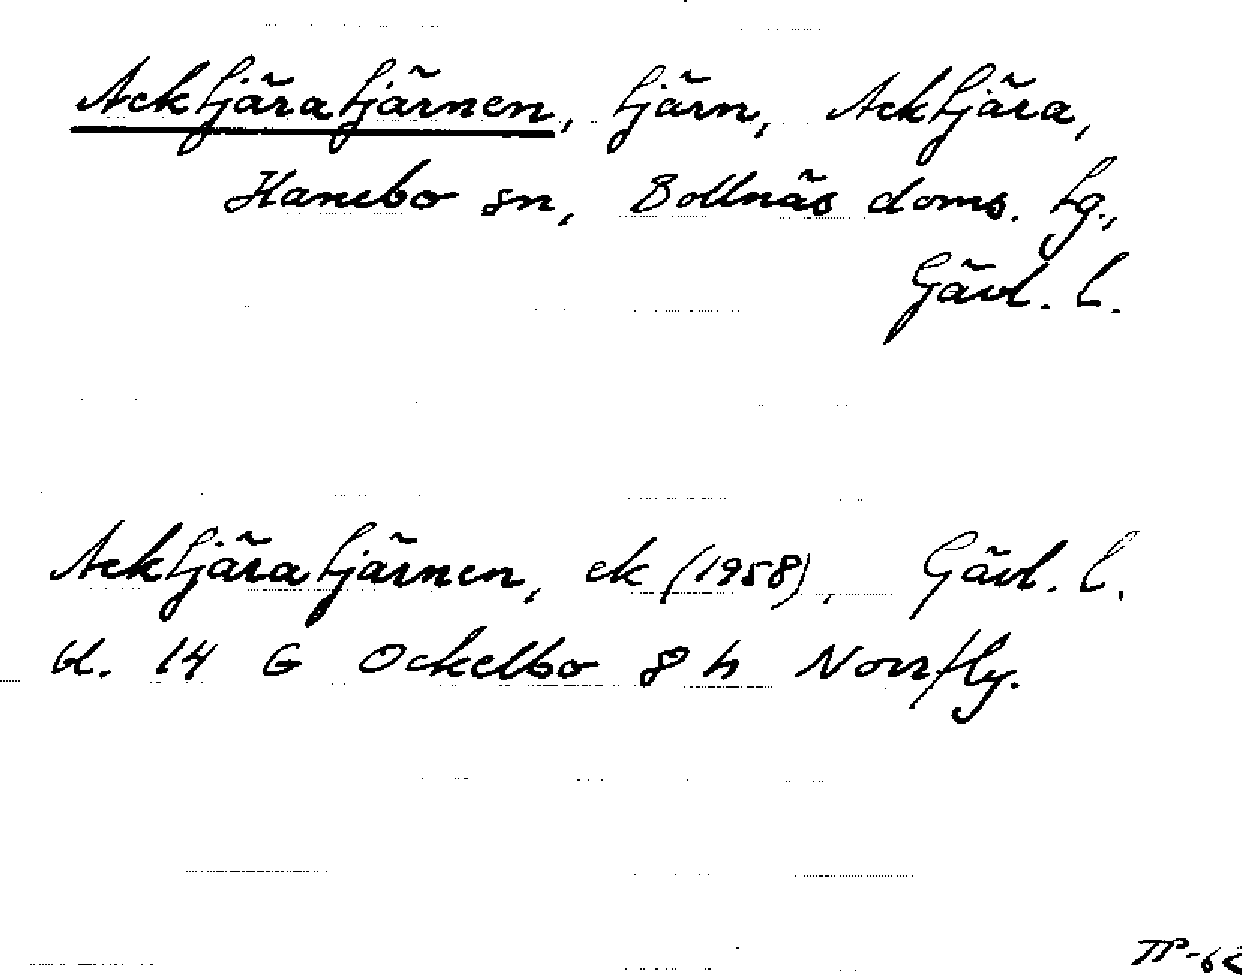 Acktjäratjärnen, tjärn, Acktjära,
Hanebo sn, Bollnäs doms. tg.,
Gävl. l.
Acktjäratjärnen, ek (1958), Gävl. l.
bl. 14 G Ockelbo 8 h Norrfly.